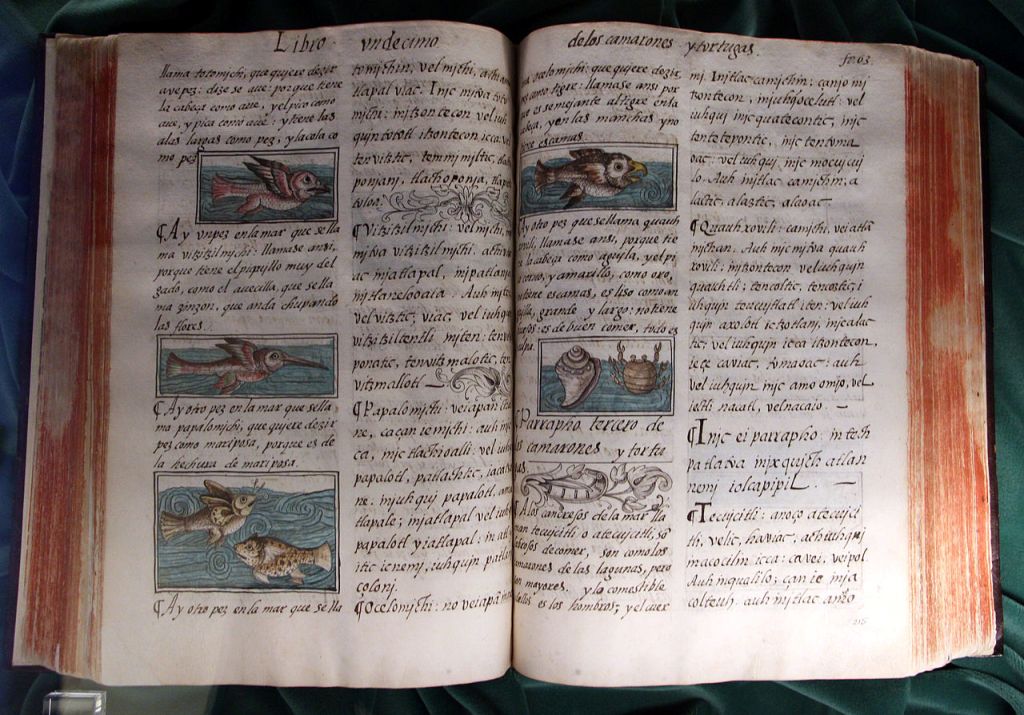 Libro vndecimo
llama totomichi, que quiere dezir
aue pez: dize se aue: porque tiene
la cabeça como aue, y el pico como
aue, y pica como aue: y tiene las
alas largas como pez, y la cola co
mo pez
¶Ay vn pez en la mar que se lla
ma vitzitzilmichi: llamase ansi,
porque tiene el piquillo muy del
gado, como el auecilla, que se lla
ma zinzon, que anda chupando
las flores.
¶Ay otro pez en la mar que se lla
ma papalomichi, que quiere dezir
pez como mariposa, porque es de
la hechura de mariposa.
¶Ay otro pez en la mar que se lla
tomichin, vel michi,
tlapal viac. Inic
michi: itzontecon vel iuh
quin tototl itzontecon icca
ten vitztic, temmimiltic,
ponjanj, tlachoponja,
tolol.
¶Vitzitzilmichi: vel michi,
ma vitzitzil michi,
ac mjatlapal, mjpatlanja
mjtlaneloaia. Auh
vel vitztic; viac, vel iuhq
vitzitziltentli miten:
ponatic, tenvitzmalotic,
vitzmallotl
¶Papalomichi:
ne, caçan ie michi: auh
ca, mic tlachioalli: vel
papalotl, patlachtic,
ne. injuhquj papalotl.
tlapale; injatlapal vel
papalotl yiatlapal: in atl
itic ienemj, iuhquin
colonj.
¶Ocelomichi: no veiapan
de los camarones y tortugas.
fo. 63.
ma ocelomichi: que quiere dezir,
pez como tigre: llamase ansi por
que es semejante al tigre en la
cabeça, y en las manchas y no
tiene escamas.
¶Ay otro pez que se llama quauh
xouili, llamase ansi, porque tie
ne la cabeça como aguila, y el pi
co coruo, y amarillo, como oro,
no tiene escamas, es liso como an
guilla, grande y largo: no tiene
huesos: es de buen comer, todo es
pulpa
Parrapho tercero de
los camarones y tortu
gas.
¶A los cangrejos de la mar lla
man tecujcitli o atecujcitli, so
sabrosos de comer, son como los
camarones de las lagunas, pero
son mayores. y lo comestible
dellos es los hombros; y el cuer
mj. Initlac camichim: canjo mj
tzontecon, injuhq ocelutl: vel
iuhquj injc quatecontic, injc
tentetepontic, injc tentoma
oac: vel iuhquj, injc mocujcui
lo. Auh initlac camichim, a
lactic, alaztic, alaoac.
¶Quauhxouili: camichi, veiatla
michan. Auh injc mitoa quauh
xouili: initzontecon vel iuhquin
quauhtli: tencoltic, tencoztic; i
uhquin teocujtlatl iten: vel iuh
quin axolotl ic tzotlanj, injc alac
tic; vel iuhquin icca itzontecon,
icca caviac, tomaoac: auh
vel iuhquin injc amo omijo, vel
iehtli nacatl, vel nacaio.
¶Injc ei parrapho: intech
patlatoa injxquich atlan
nenj iolcapipil.
¶Tecujcitli: anoço atecujci
tli, velic, haviac, achiiuhquj
macocilin icca: cavei, vei pol
Auh inqualilo; çan ie inja
colteuh. auh initlac amo
216